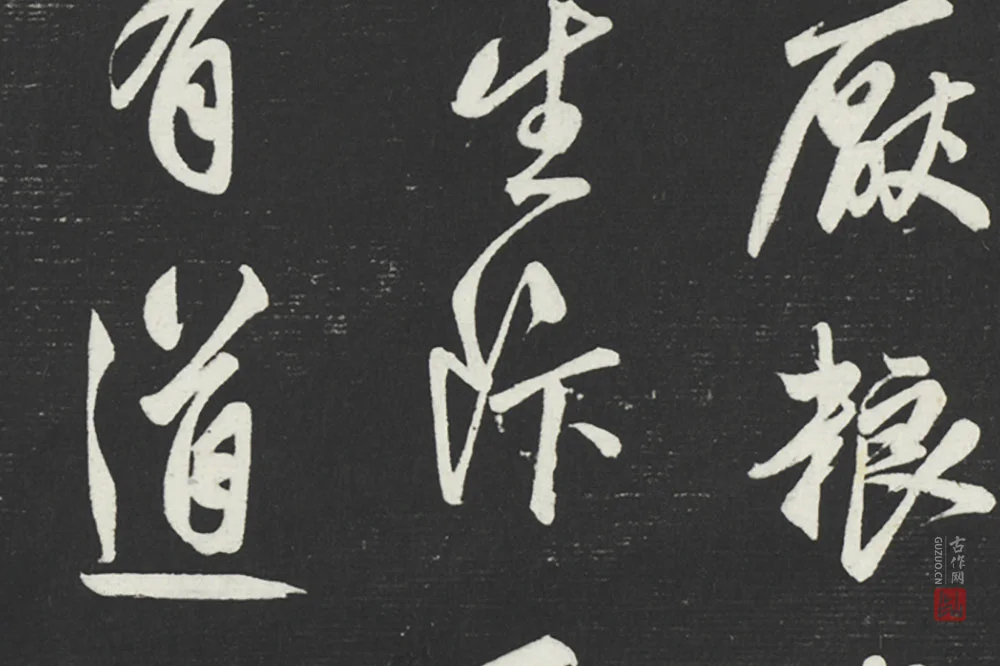 厭粮
生
有道
古作网
GUZUO.CN